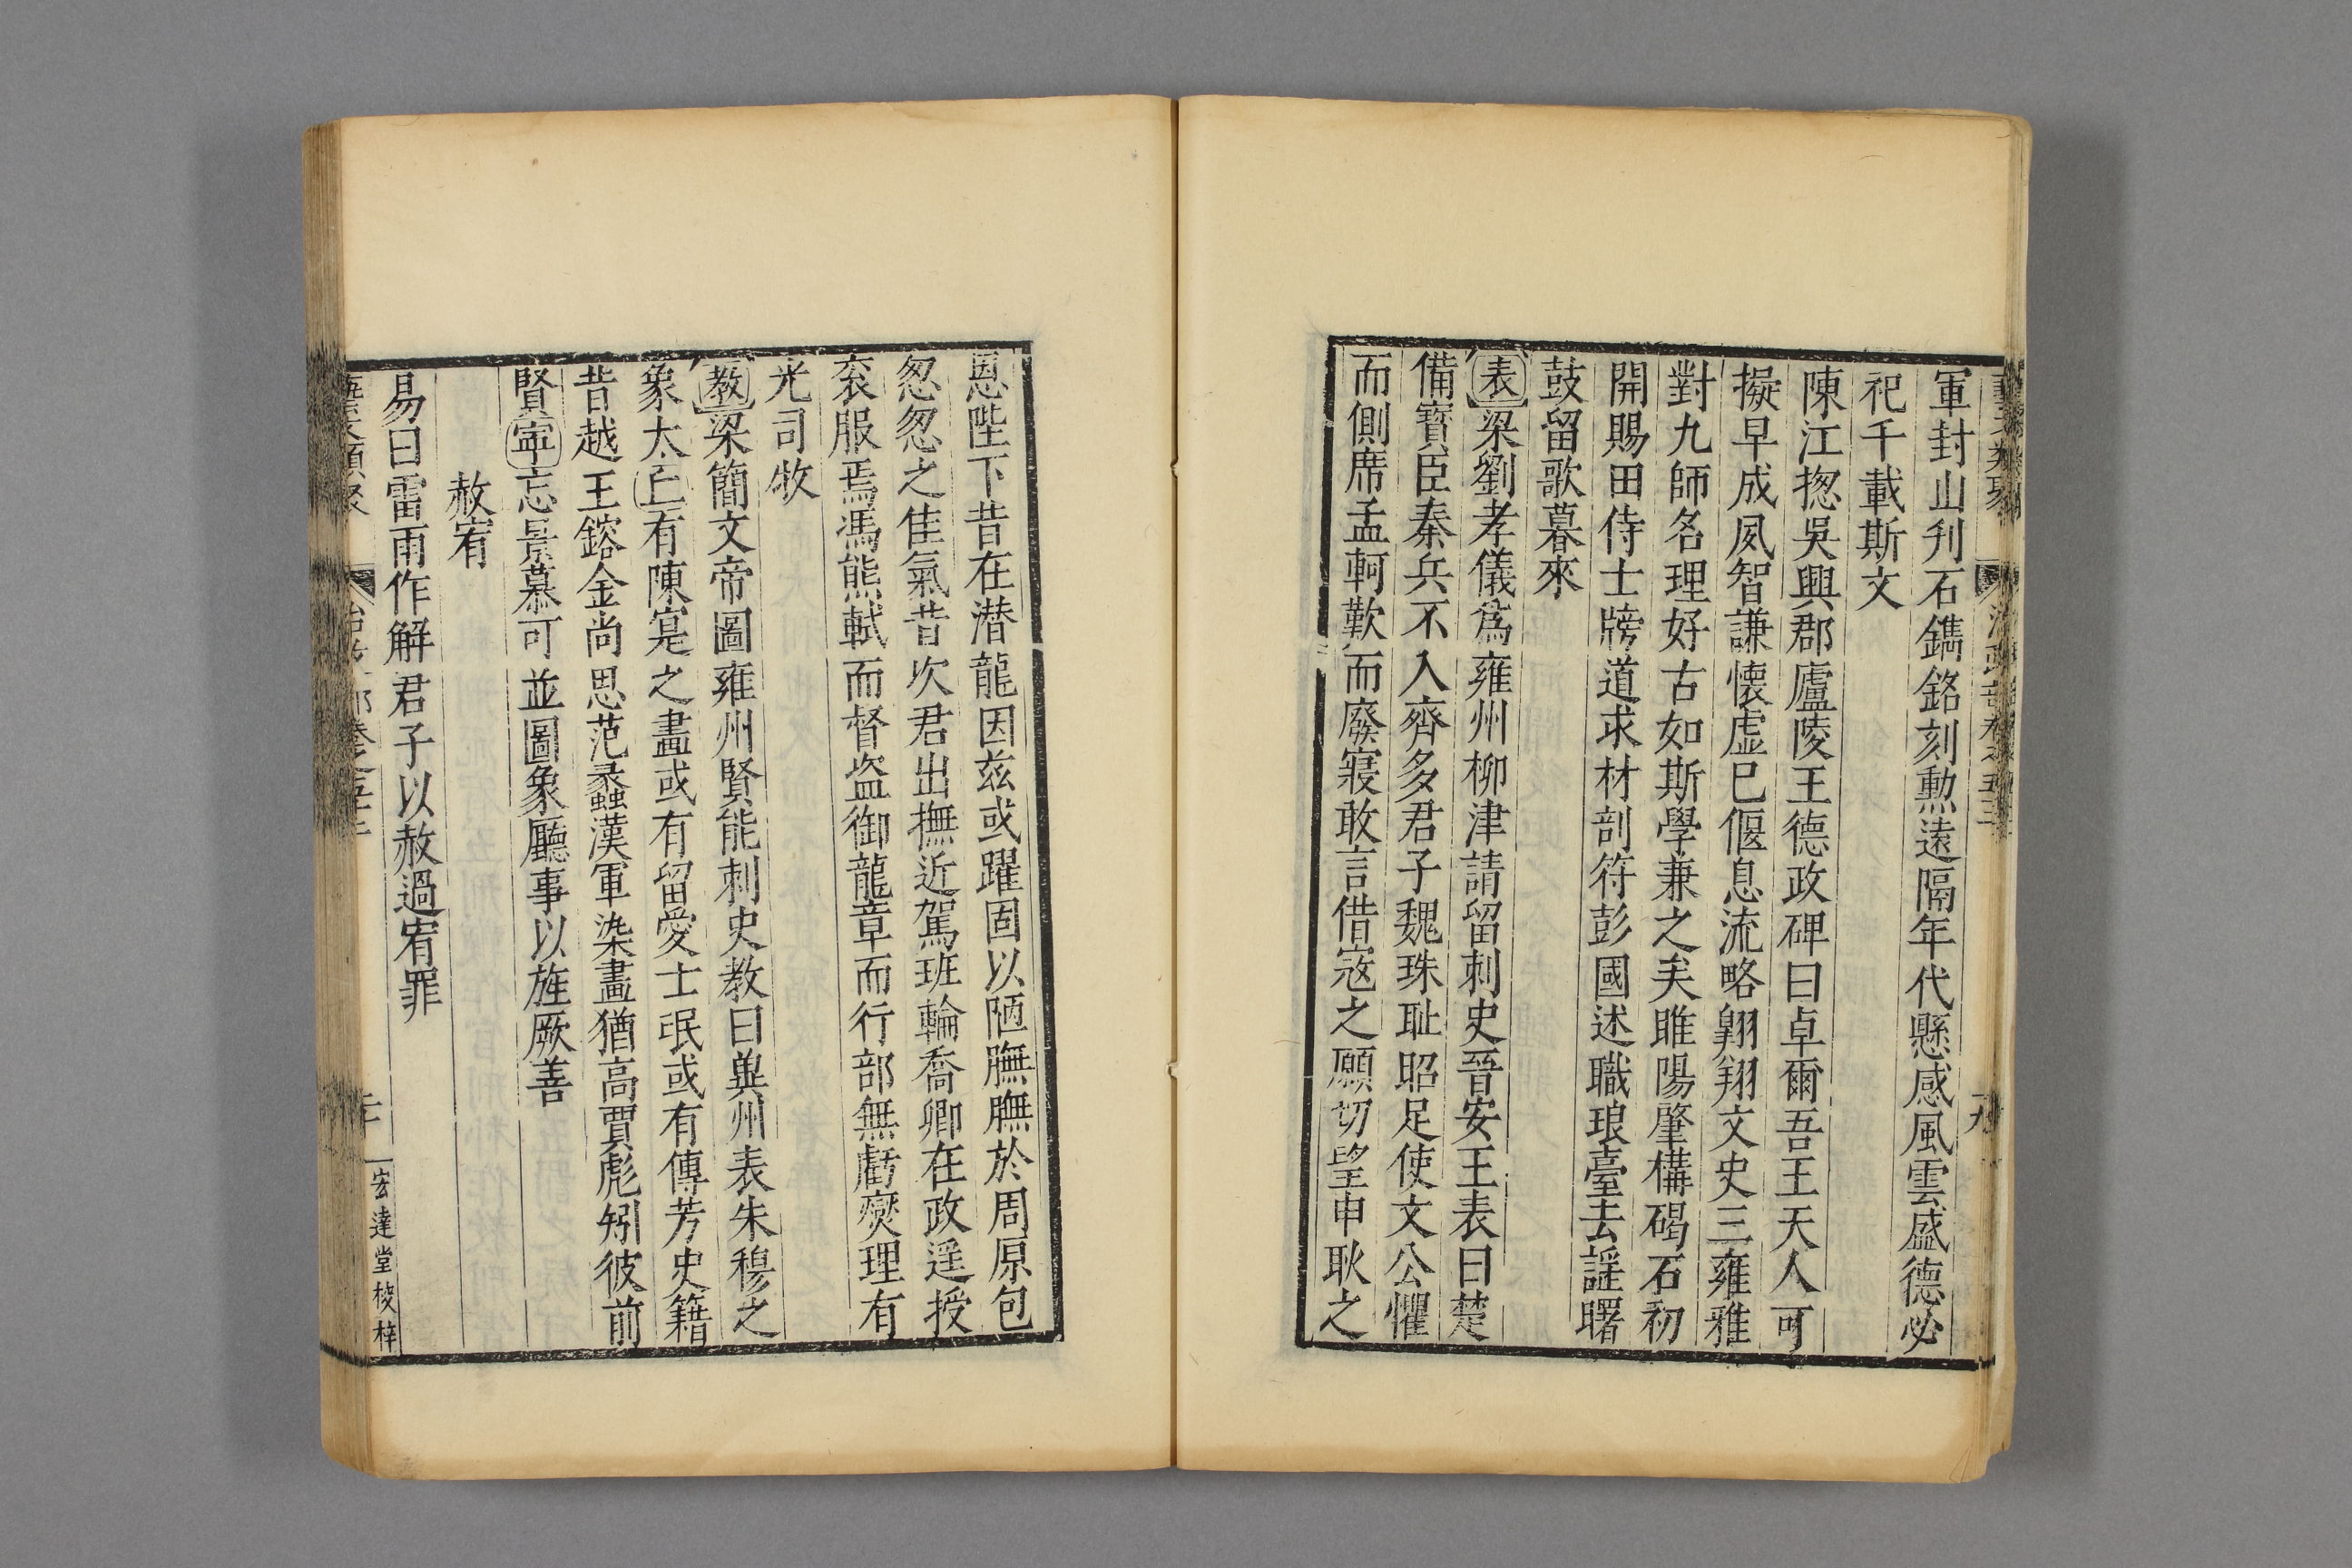 軍封山刋石鐫銘刻勲遠隔年代懸感風雲盛德必
祀千載斯文
陳江揔吳興郡廬陵王德政碑曰卓爾吾王天人可
擬早成夙智謙懷虚巳偃息流略翺翔文史三雍雅
對九師名理好古如斯學兼之矣睢陽肇構碣石初
開賜田侍士牓道求材剖符彭國述職琅臺去謡曙
鼓留歌暮來
表梁劉孝儀爲雍州柳津請留刺史晉安王表曰楚
備寳臣秦兵不入齊多君子魏珠耻昭足使文公懼
而側席孟軻歎而廢寢敢言借寇之願切望申耿之
恩陛下昔在潜龍因兹或躍固以陋膴膴於周原包
怱怱之佳氣昔次君出撫近駕班輪喬卿在政遥授
衮服焉馮熊軾而督盗御龍章而行部無虧爕理有
光司牧
教梁簡文帝圖雍州賢能刺史教曰兾州表朱穆之
象太丘有陳寔之畫或有留愛士氓或有傳芳史籍
昔越王鎔金尚思范蠡漢軍染畫猶高賈彪矧彼前
賢寧忘景慕可並圖象廳事以旌厥善
赦宥
易曰雷雨作解君子以赦過宥罪
宏達堂校梓